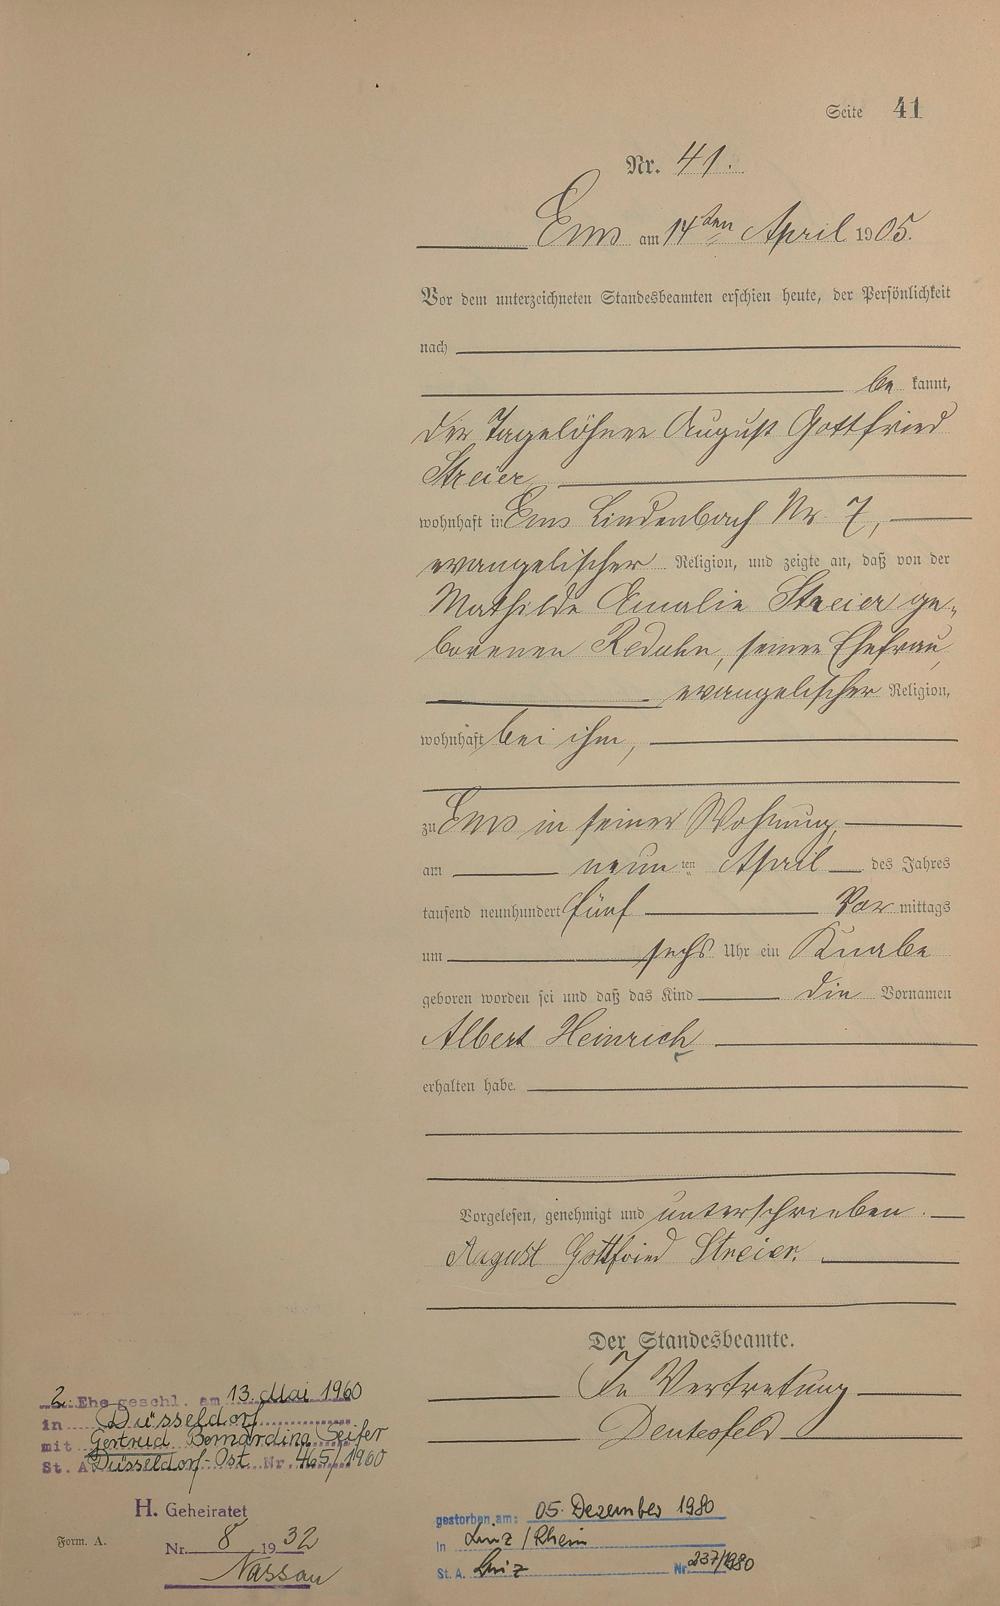 Seite 41
Nr. 41.
Ems am 14ten April 1905.
Vor dem unterzeichneten Standesbeamten erschien heute, der Persönlichkeit
nach
be kannt,
der Tagelöhner August Gottfried
Streier
wohnhaft in Ems Lindenbach Nr. 7,
evangelischer Religion, und zeigte an, daß von der
Mathilde Amalie Streier ge-
borenen Redahn, seiner Ehefrau,
evangelischer Religion,
wohnhaft bei ihm,
zu Ems in seiner Wohnung,
am neun ten April des Jahres
tausend neunhundert fünf Vor mittags
um sechs Uhr ein Knabe
geboren worden sei und daß das Kind die Vornamen
Albert Heinrich
erhalten habe.
Vorgelesen, genehmigt und unterschrieben.
August Gottfried Streier.
Der Standesbeamte.
In Vertretung
2. Ehe geschl. am 13. Mai 1960
in Düsseldorf
mit Gertrud Bernardina Seifer
St. A. Düsseldorf-Ost Nr. 465/1960
H. Geheiratet
Nr. 8 1932
Nassau
Form. A.
gestorben am: 05. Dezember 1980
in Linz / Rhein
St. A. Linz Nr. 237/1980